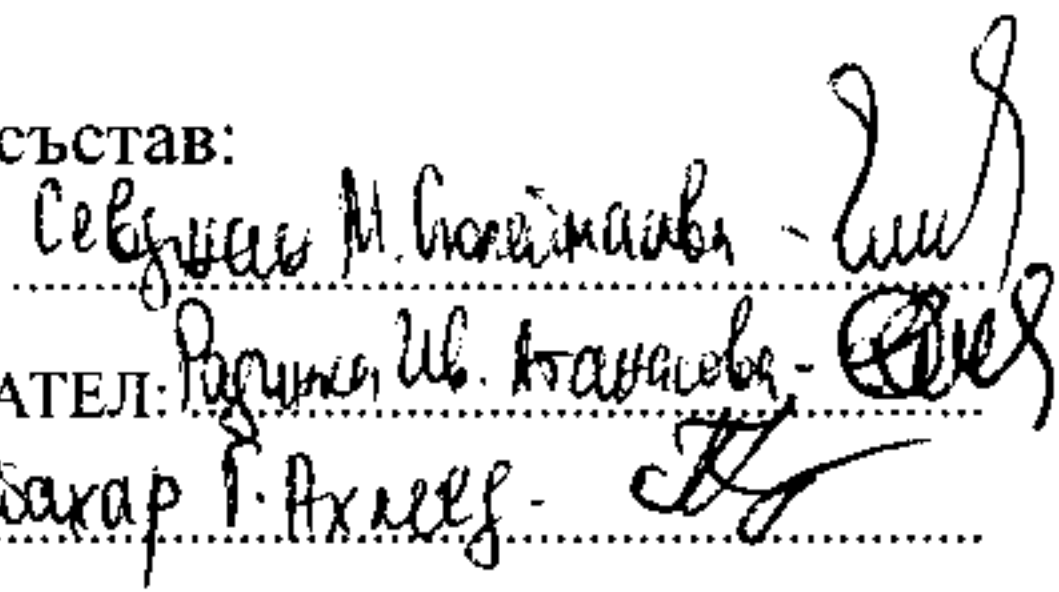 състав:
Севджан М. Сюлейманова -
АТЕЛ: Радина Ив. Атанасова -
Бахар Г. Ахмед -